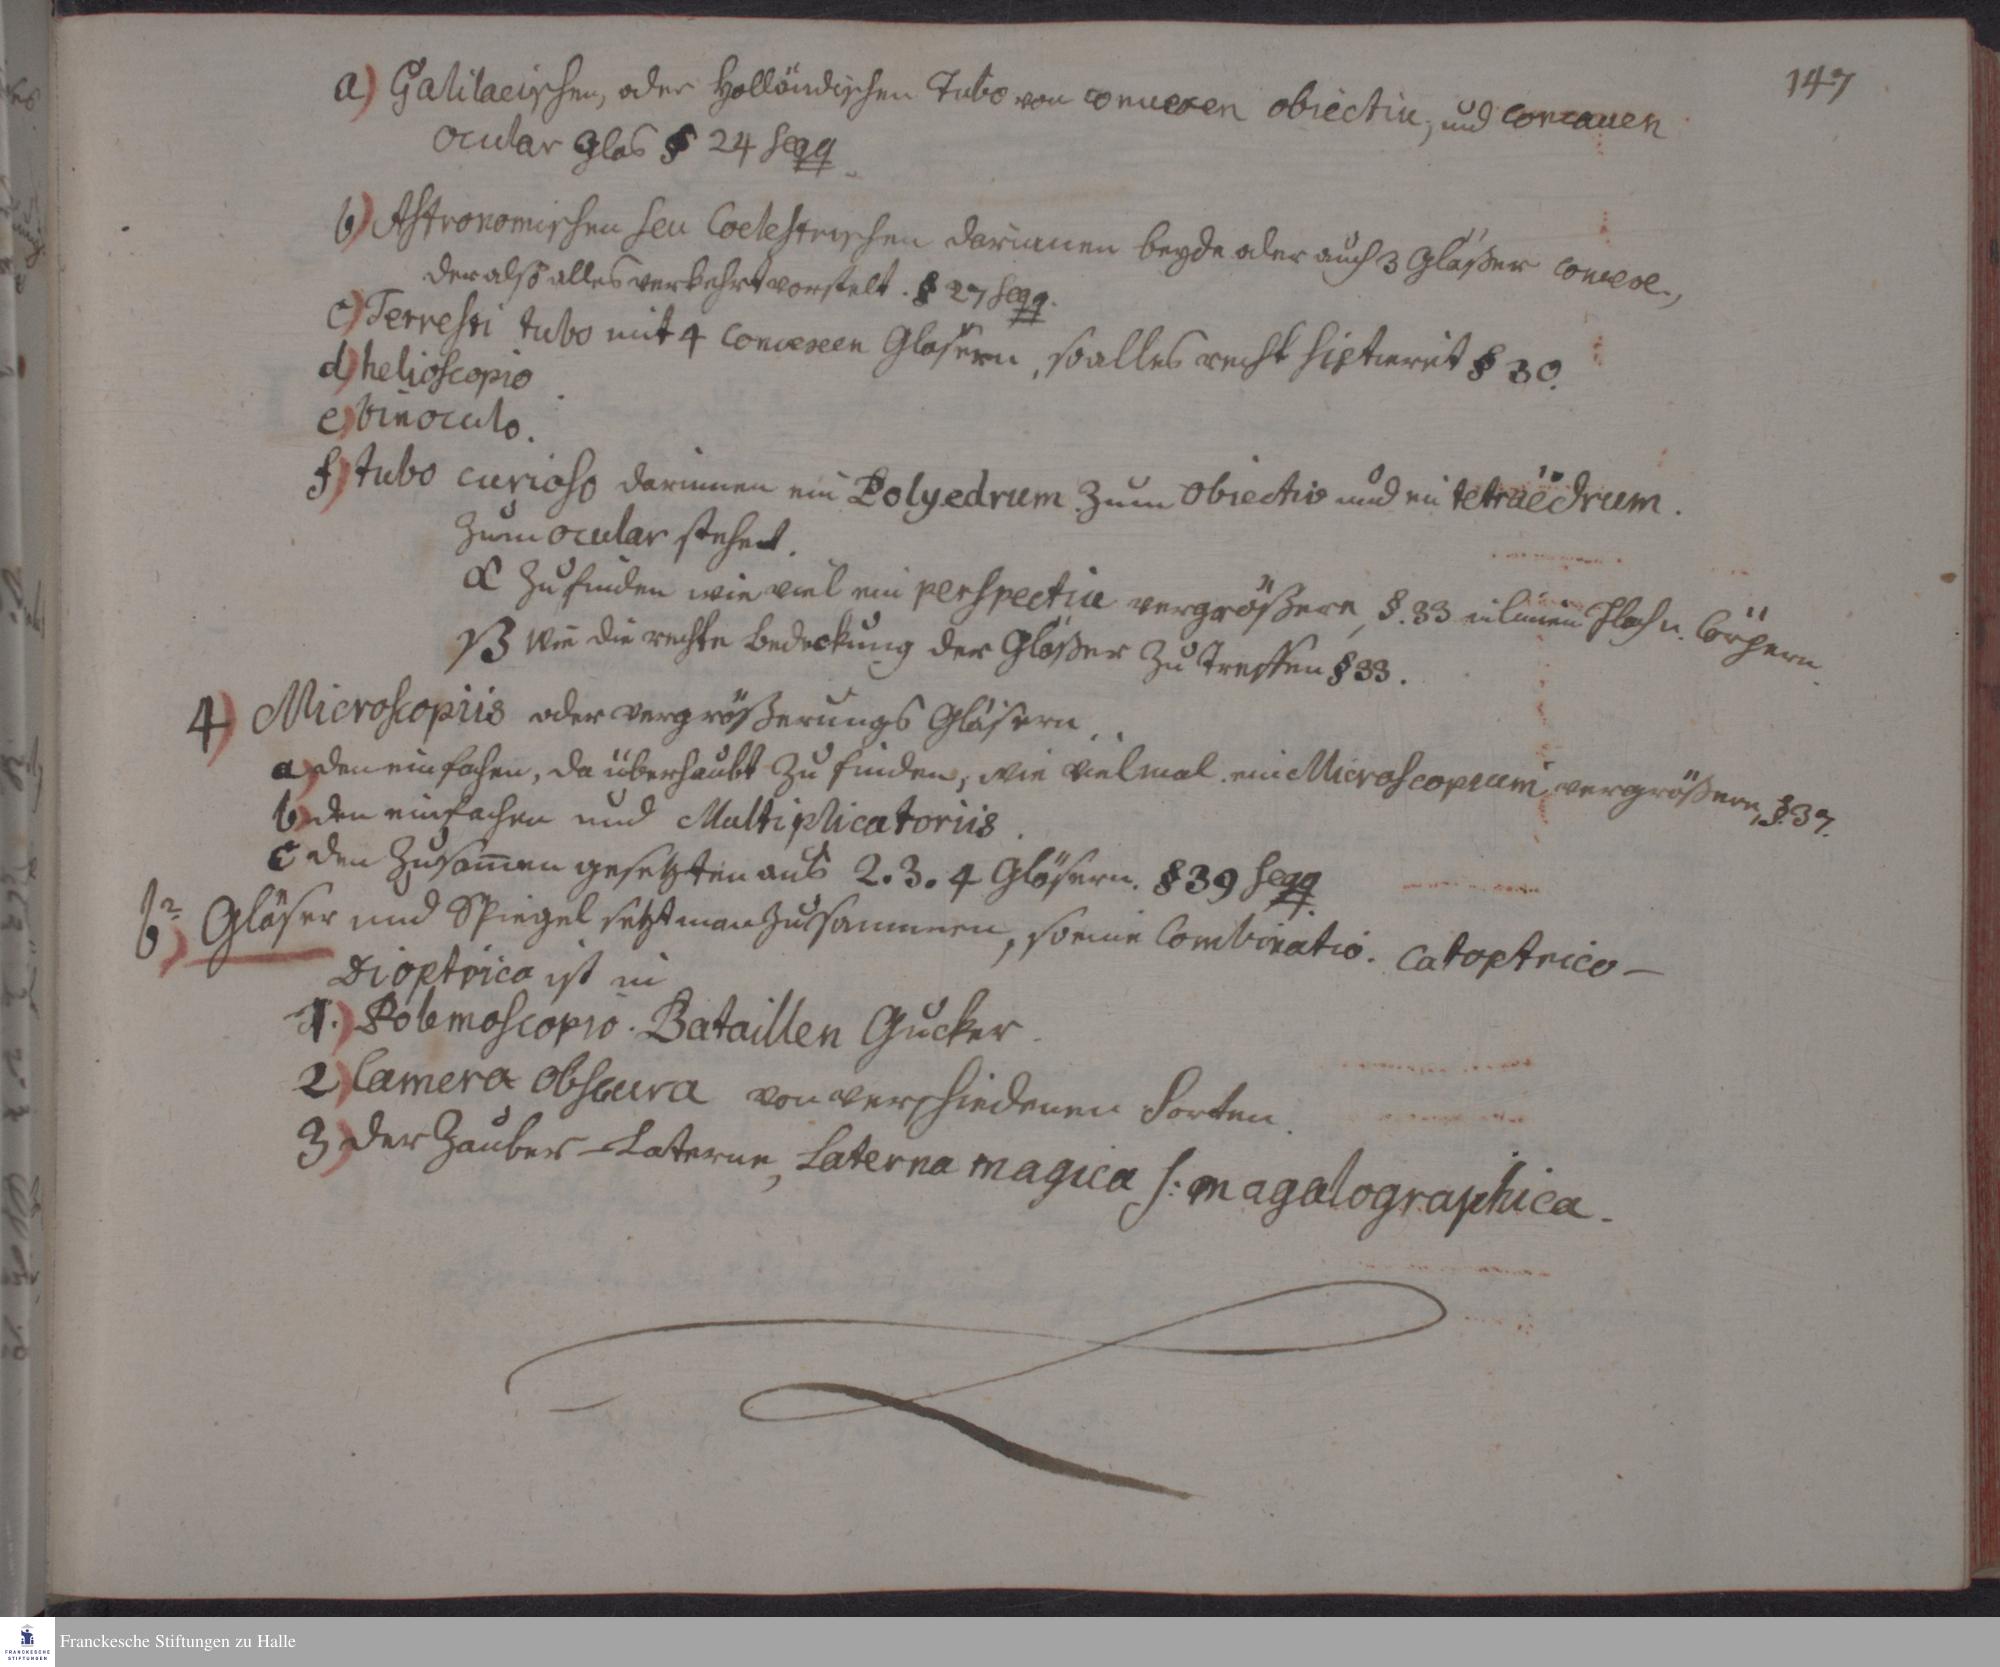 147
a) Galilaeischen, oder Holländischen Tubo von convexen obiectiv, und concaven
ocular glas § 24 seqq.
b) Astronomischen seu Coelestrischen darinnen beyde oder auch 3 Gläßer convex.,
der also alles verkehrt vorstelt. § 27 seqq.
c) Terrestri tubo mit 4 convexen Gläsern, so alles recht sistieret § 30.
d) helioscopio.
e) binoculo.
f) tubo curioso darinnen ein Polyedrum zum obiectiv und ein tetraëdrum.
zum ocular stehet.
α zu finden wie viel ein perspectiv vergrößere, §. 33 in linien Flach u. Cörpern.
β Wie die rechte bedeckung der Gläßer zu treffen § 33.
4) Microscopiis oder vergrößerungs Gläsern.
a) den einfachen, da überhaubt zu finden, wie vielmal ein Microscopium vergrößere, §. 37.
b) den einfachen und Multiplicatoriis.
c den zusam̅en gesetzten aus 2. 3. 4 Gläsern. § 39 seqq.
b²) Gläser und Spiegel setzt man zusammen, so eine Combinatio. Catoptrico-
Dioptrica ist in
1.) Polemoscopio. Bataillen Gucker.
2) Camera obscura von verschiedenen Sorten.
3) der Zauber-Laterne, Laterna magica s: magalographica.
Franckesche Stiftungen zu Halle
FRANCKESCHE
STIFTUNGEN